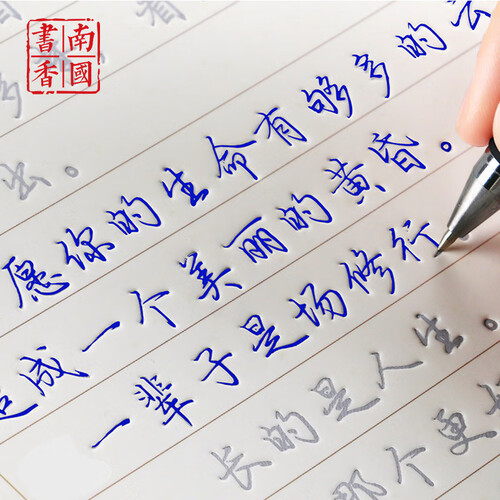 南國
書香
出。
愿你的生命有够多的云
造成一个美丽的黄昏。
一辈子是场修行
长的是人生。
那个更好